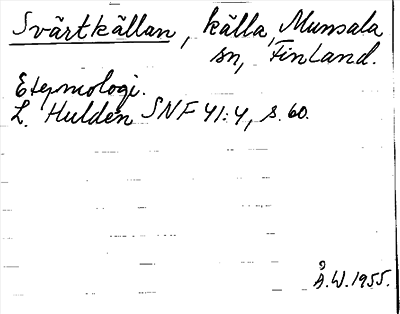 Svärtkällan, källa, Munsala
sn, Finland.
Etymologi.
L. Huldén SNF 41:4, s. 60.
Å.W. 1955.